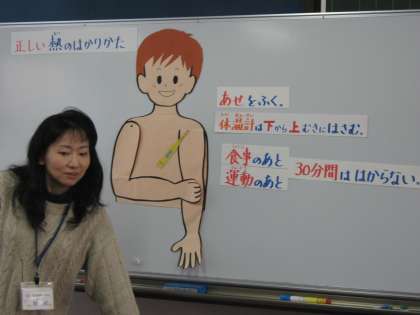 正しい熱のはかりかた
あせをふく。
体温計は下から上むきにはさむ。
食事のあと
運動のあと
30分間ははからない。